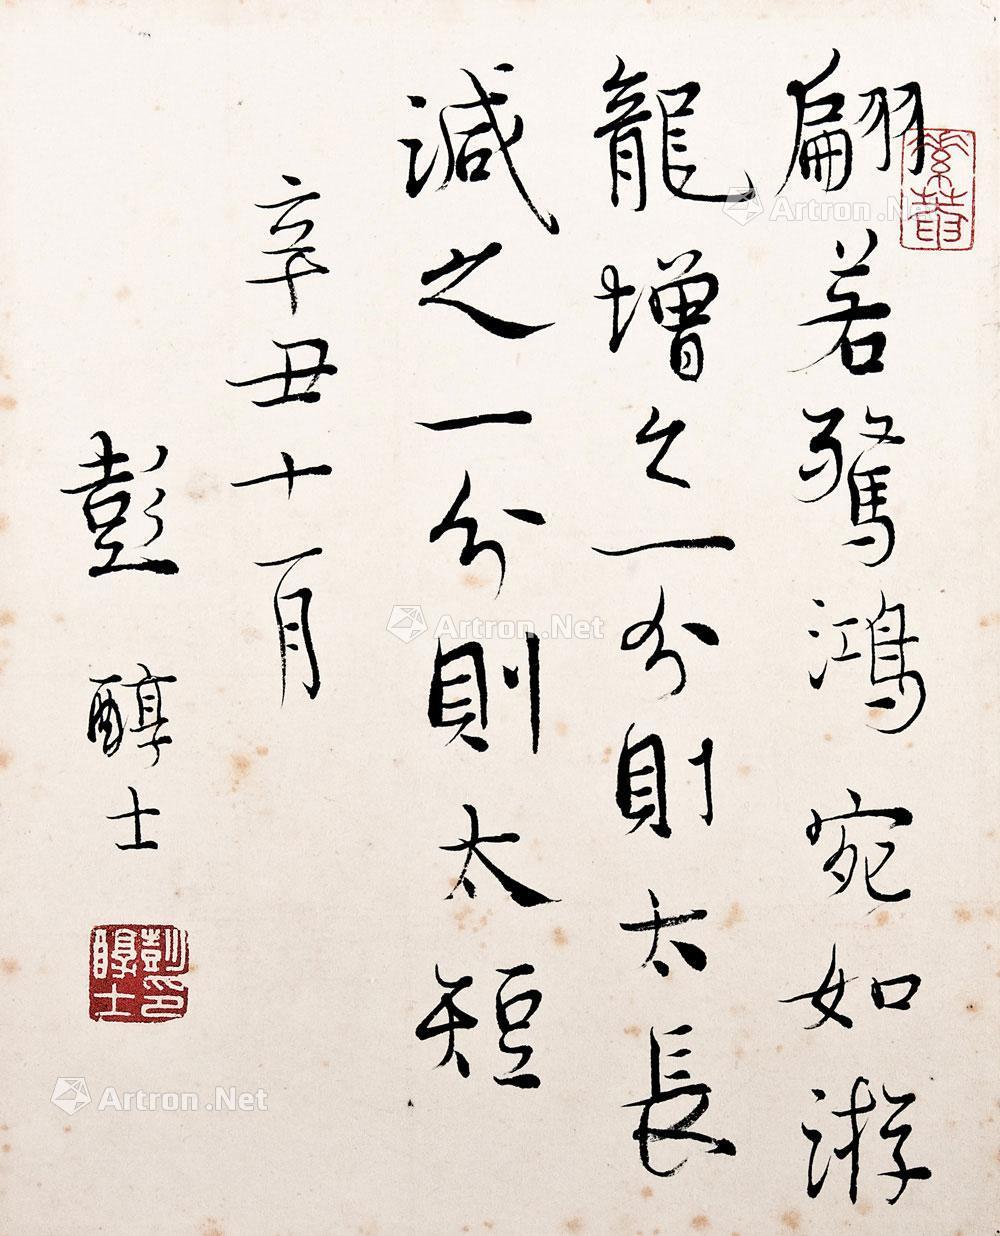 翩若驚鴻宛如游
龍增之一分則太長
減之一分則太短
辛丑十一月
彭醇士
彭醇士印
Artron.Net
Artron.Net
Artron.Net